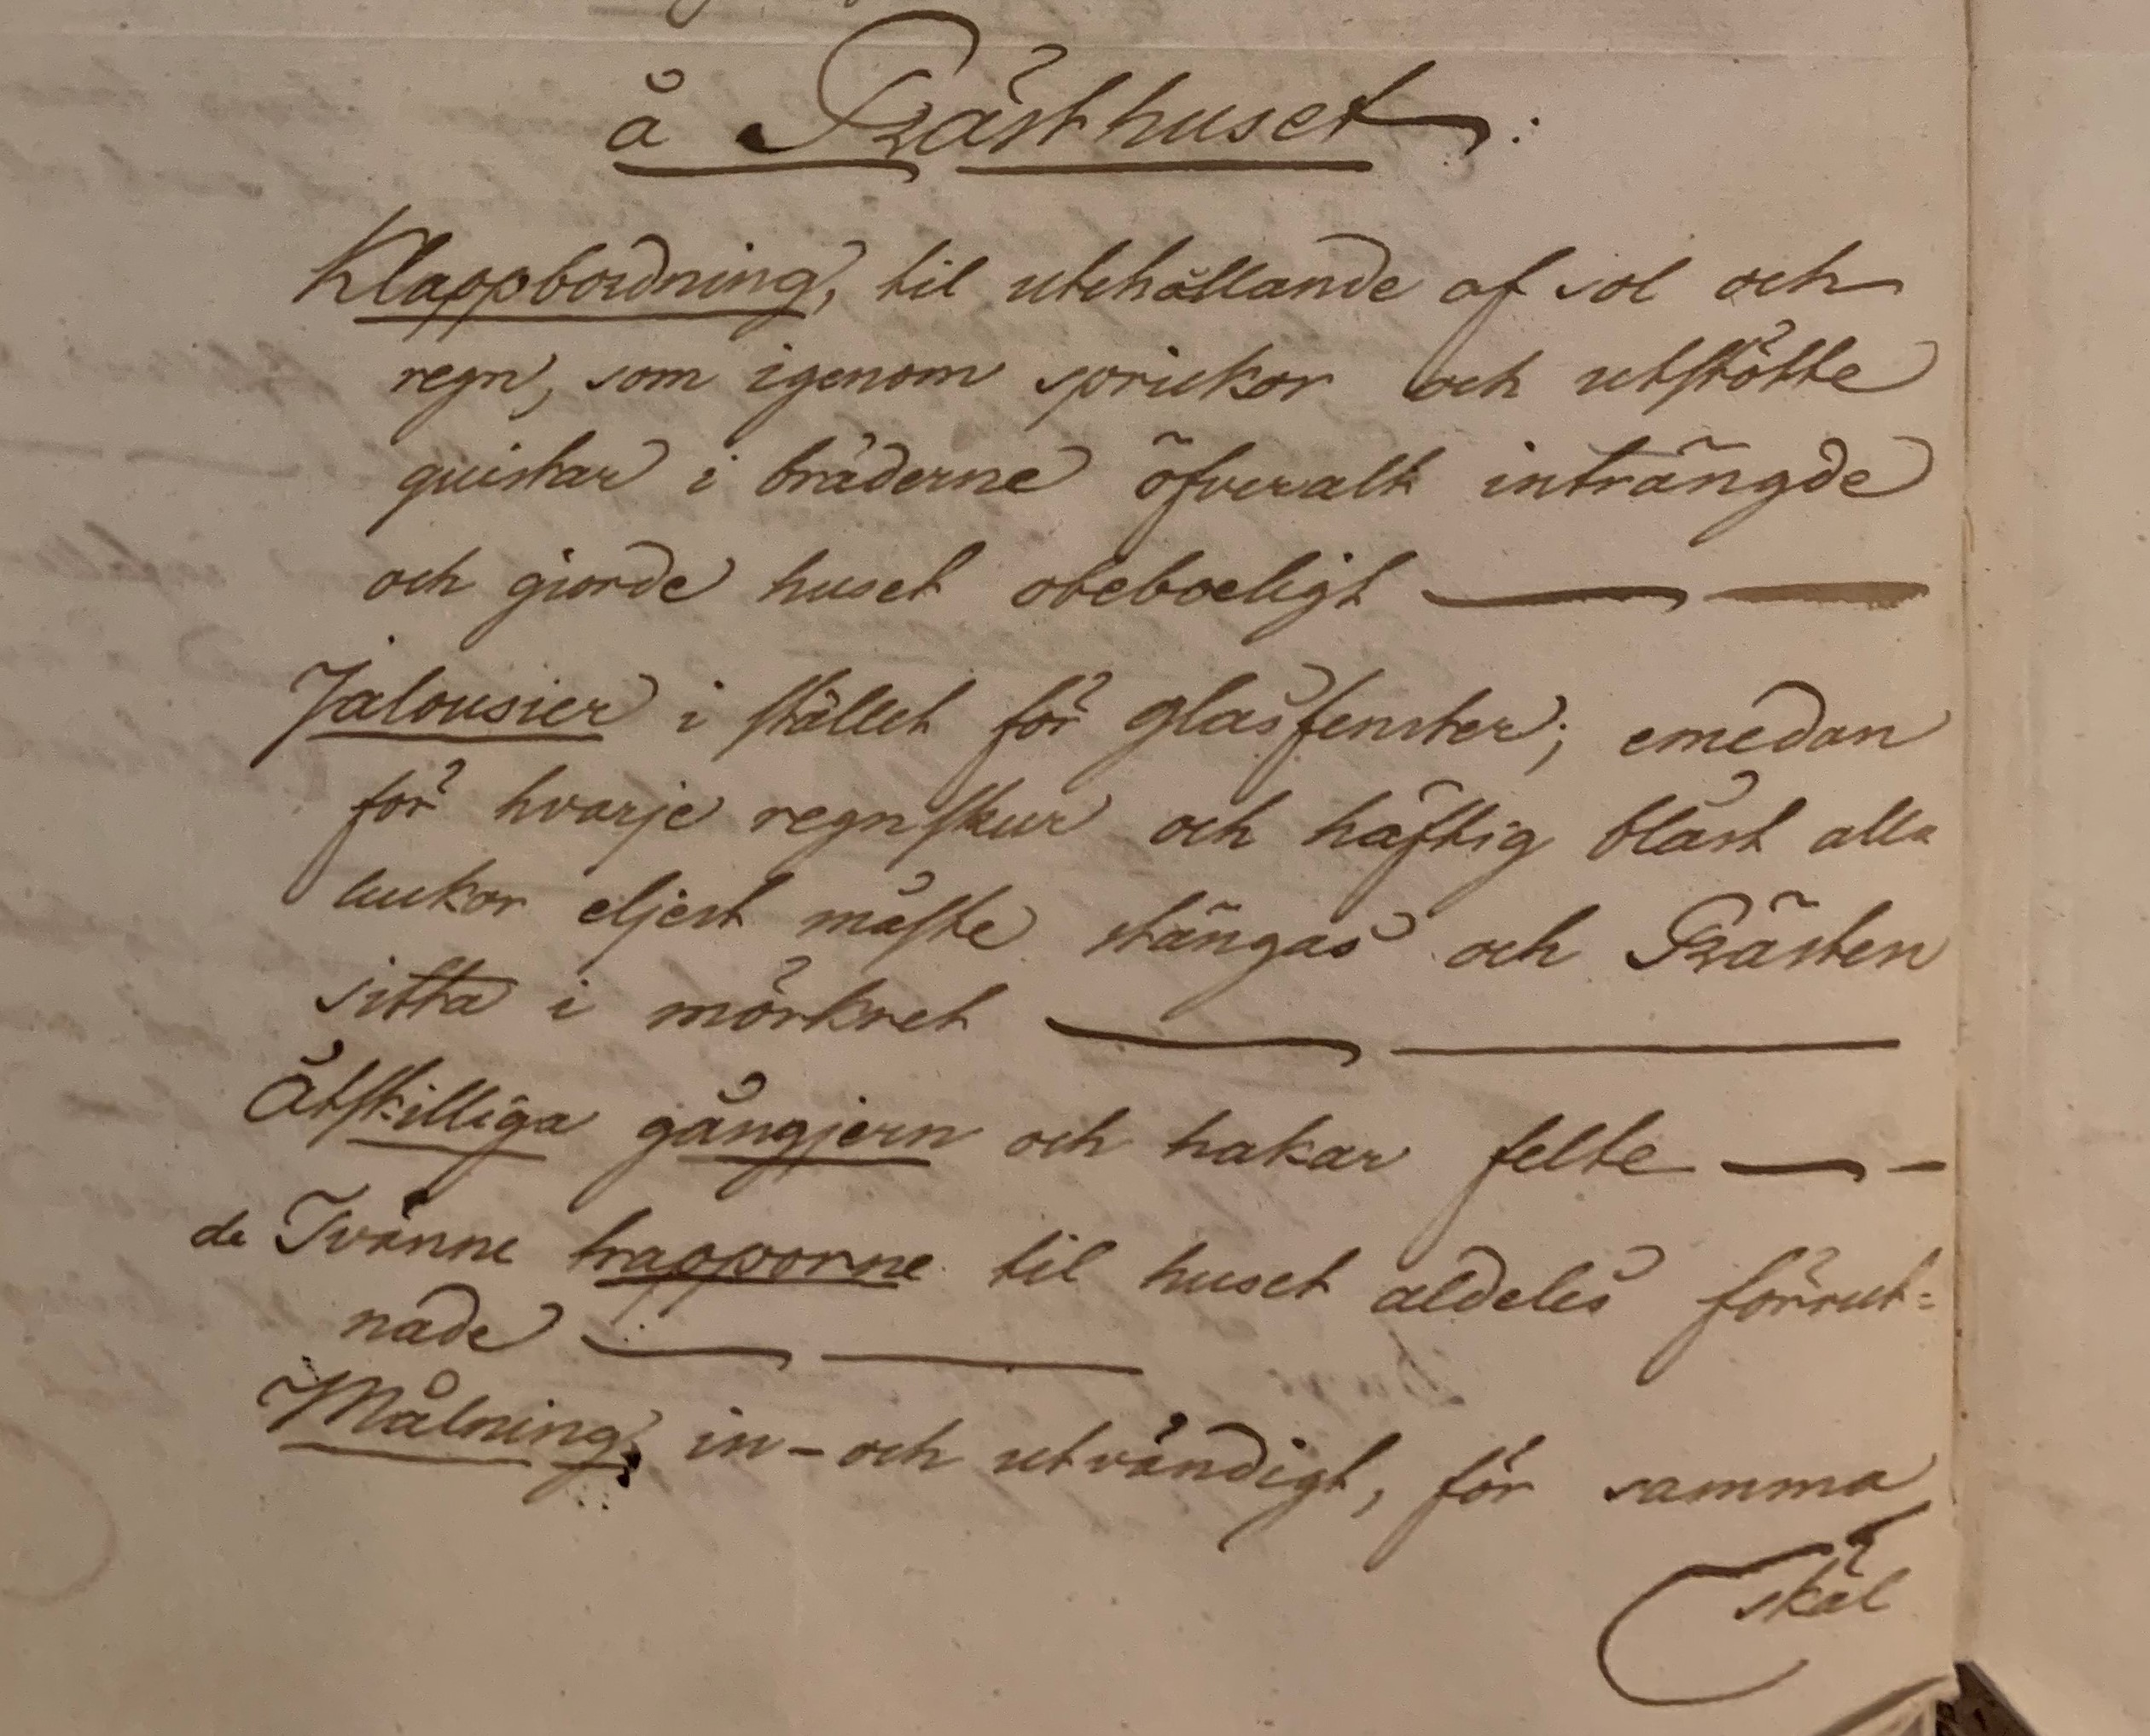 å Prästhuset:
Klappbordning, til utehållande af sol och
regn, som igenom sprickor och utstötte
quistar i bräderne öfveralt inträngde
och giorde huset obeboeligt ——
Jalousier i stället för glasfenster; emedan
för hvarje regnskur och häftig blåst alla
luckor eljest måste stängas och Prästen
sitta i mörkret ——
Åtskilliga gångjern och hakar felte ——
de Tvänne trapporne til huset aldeles förrut=
nade ——
Målning, in- och utvändigt, för samma
skäl